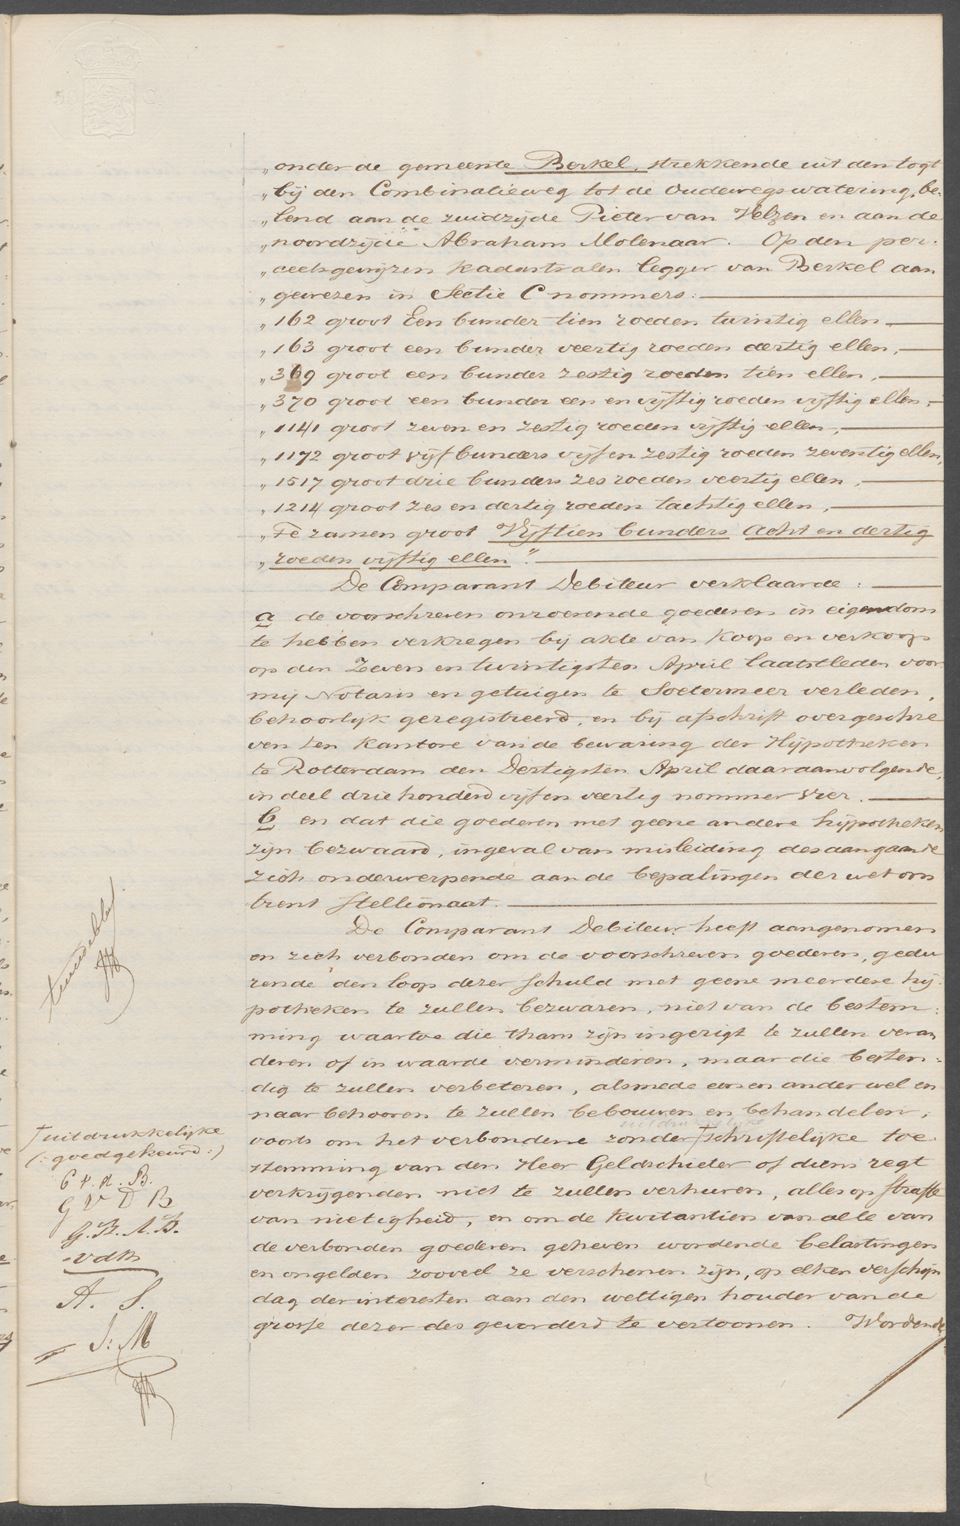 „onder de gemeente Berkel, strekkende uit den togt
„bij den Combinatieweg tot de Oudewegswatering, be-
„lend aan de zuidzijde Pieter van Velzen en aan de
„noordzijde Abraham Molenaar. Op den per-
„ceelsgewijzen kadastralen legger van Berkel aan
„gewezen in Sectie C nommers:
„162 groot Een bunder tien roeden twintig ellen
„163 groot een bunder veertig roeden dertig ellen,
„369 groot een bunder zestig roeden tien ellen,
„370 groot een bunder een en vijftig roeden vijftig ellen,
„1141 groot zeven en zestig roeden vijftig ellen,
„1172 groot vijf bunders vijf en zestig roeden zeventig ellen,
„1517 groot drie bunders zes roeden veertig ellen,
„1214 groot zes en dertig roeden tachtig ellen,
„Te zamen groot Vijftien bunders Acht en dertig
„roeden vijftig ellen".
De Comparant Debiteur verklaarde:
a de voorschreven onroerende goederen in eigendom
te hebben verkregen bij akte van koop en verkoop
op den Zeven en twintigsten April laatstleden voor
mij Notaris en getuigen te Soetermeer verleden,
behoorlijk geregistreerd, en bij afschrift overgeschre
ven ten kantore van de bewaring der Hypotheken
te Rotterdam den Dertigsten April daaraanvolgende,
in deel drie honderd vijf en veertig nommer vier.
b en dat die goederen met geene andere hypotheken
zijn bezwaard, ingeval van misleiding desaangaande
zich onderwerpende aan de bepalingen der wet om
trent stellionaat.
De Comparant Debiteur heeft aangenomen
en zich verbonden om de voorschreven goederen, gedu
rende den loop dezer schuld met geene meerdere hy-
potheken te zullen bezwaren, niet van de bestem-
ming waartoe die thans zijn ingerigt te zullen veran
deren of in waarde verminderen, maar die besten-
dig te zullen verbeteren, alsmede een en ander wel en
naar behooren te zullen bebouwen en behandelen,
voorts om het verbondene zonder schriftelijke toe-
stemming van den Heer Geldschieter of diens regt
verkrijgenden niet te zullen verhuren, alles op straffe
van nietigheid, en om de kwitantien van alle van
de verbonden goederen geheven wordende belastingen
en ongelden zooveel ze verschenen zijn, op elken verschijn
dag der interesten aan den wettigen houder van de
grosse dezer des gevorderd te vertoonen. Wordende
tweede blad
uitdrukkelijke
(:goedgekeurd:)
G V D B
G.B.A.B.
vdM
A. S.
J: M